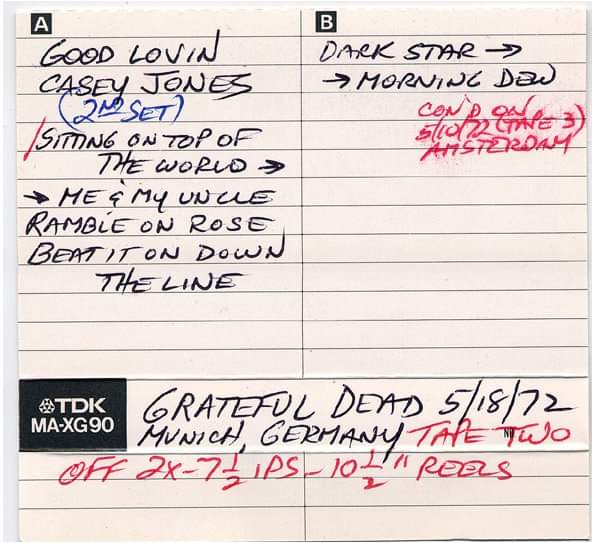 A
GOOD LOVIN
CASEY JONES
(2ND SET)
SITTING ON TOP OF
THE WORLD →
→ ME & MY UNCLE
RAMBLE ON ROSE
BEAT IT ON DOWN
THE LINE
B
DARK STAR →
→ MORNING DEW
CON'D ON
5/10/72 (TAPE 3)
AMSTERDAM
TDK
MA-XG90
GRATEFUL DEAD 5/18/72
MUNICH, GERMANY TAPE TWO
OFF 2X-7 1/2 IPS - 10 1/2" REELS